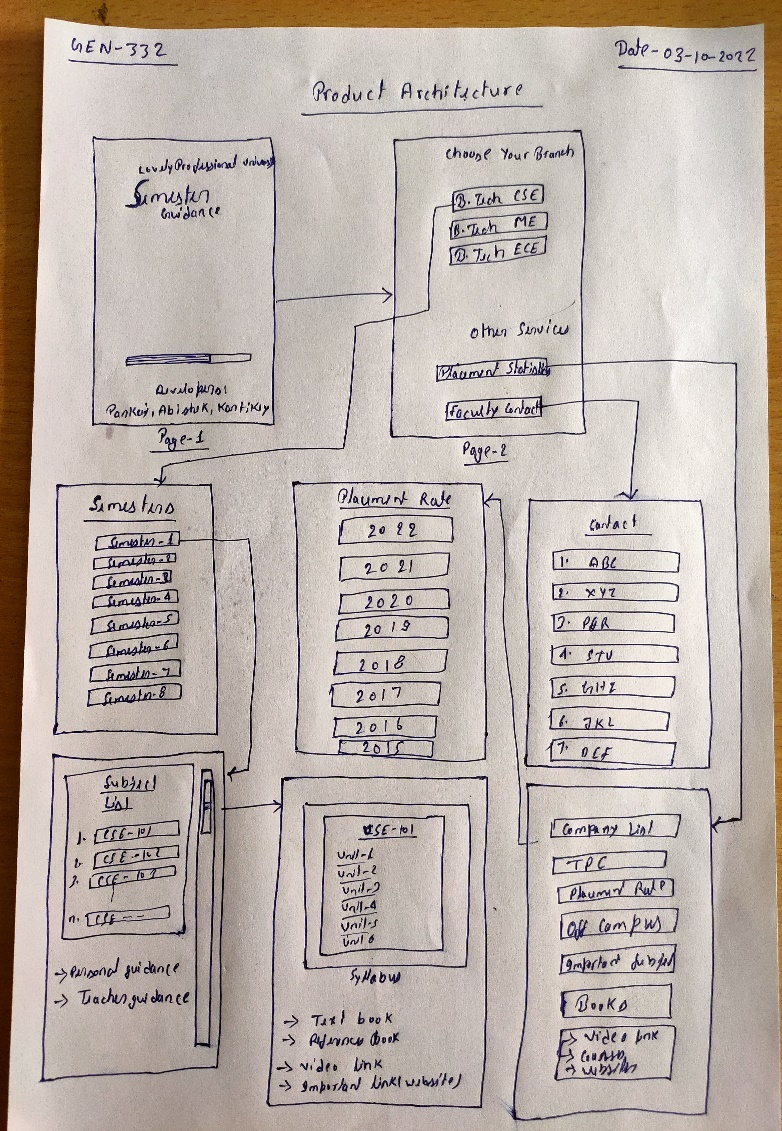 GEN-332
Date-03-10-2022
Product Architecture
Lovely Professional Univers
Semester
Guidance
Developers:
Pankaj, Abishek, Kartikey
Page-1
Choose Your Branch
B.Tech CSE
B.Tech ME
B.Tech ECE
Other Services
Placement Statistics
Faculty Contact
Page-2
Semesters
Semester-1
Semester-2
Semester-3
Semester-4
Semester-5
Semester-6
Semester-7
Semester-8
Placement Rate
2022
2021
2020
2019
2018
2017
2016
2015
Contact
1. ABC
2. XYZ
3. PQR
4. STU
5. GHI
6. JKL
7. DEF
Subject
List
1. CSE-101
2. CSE-102
3. CSE-103
n. CSE--
→ Personal guidance
→ Teacher guidance
CSE-101
Unit-1
Unit-2
Unit-3
Unit-4
Unit-5
Unit 6
Syllabus
→ Text book
→ Reference book
→ Video link
→ Important link(websites)
Company List
TPC
Placement Rate
Off Campus
Important Subject
Books
→ Video link
→ Courses
→ Websites